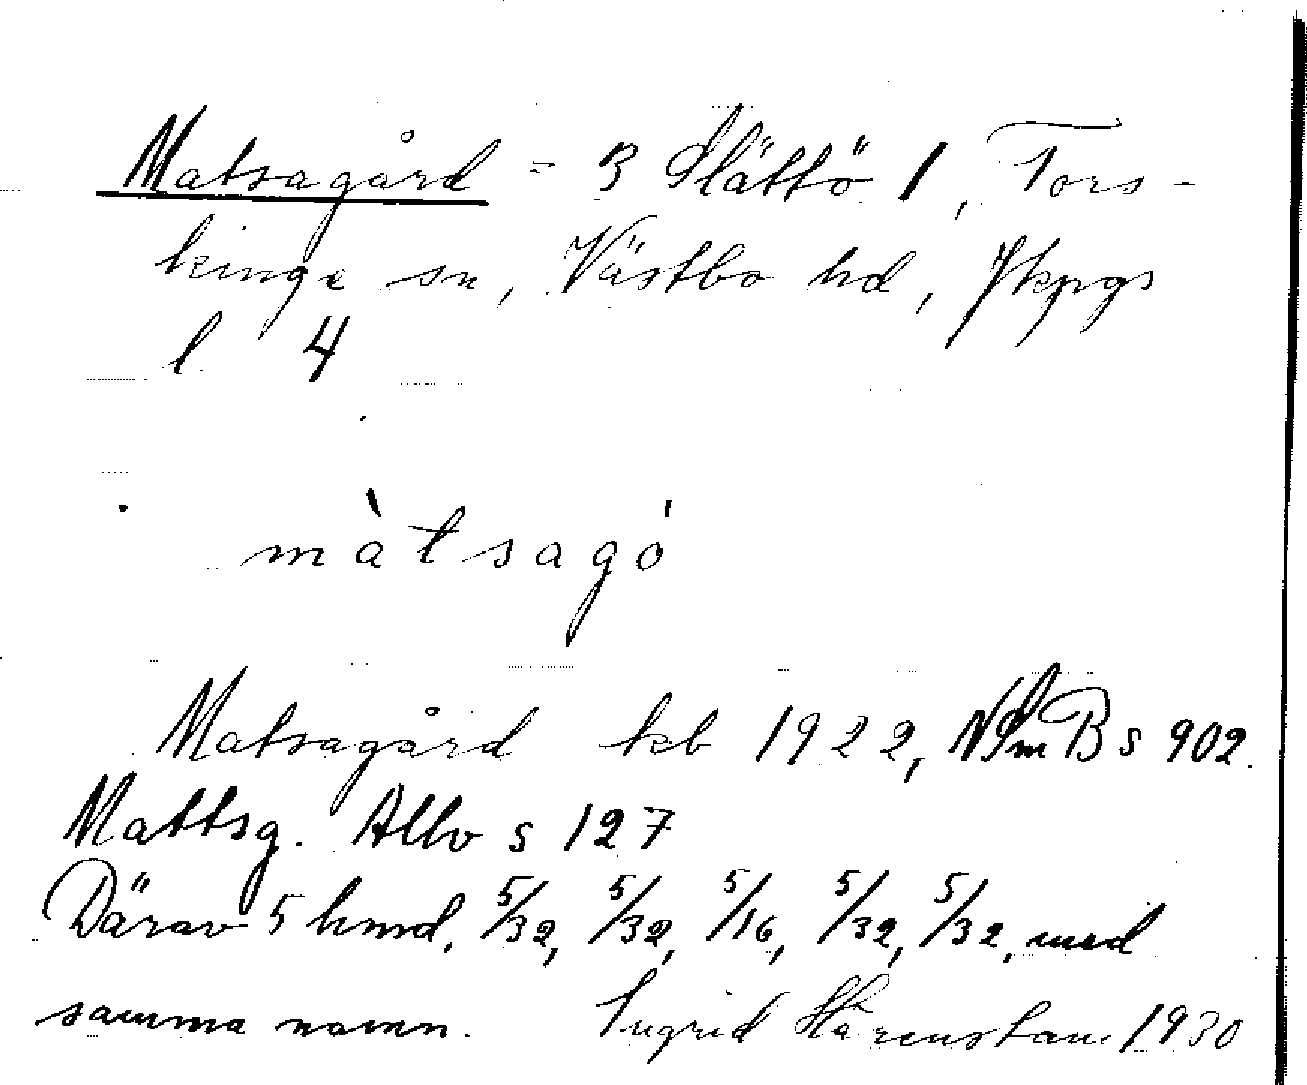 Matsagård = 3 Slättö 1, Tors-
kinge sn, Västbo hd, Jkpgs
l 4
màtsagó
Matsagård kb 1922, NSmB s 902.
Mattsg. Allv s 127
Därav 5 hmd, 5/32, 5/32, 5/16, 5/32, 5/32, med
samma namn. Ingrid Härenstam 1930